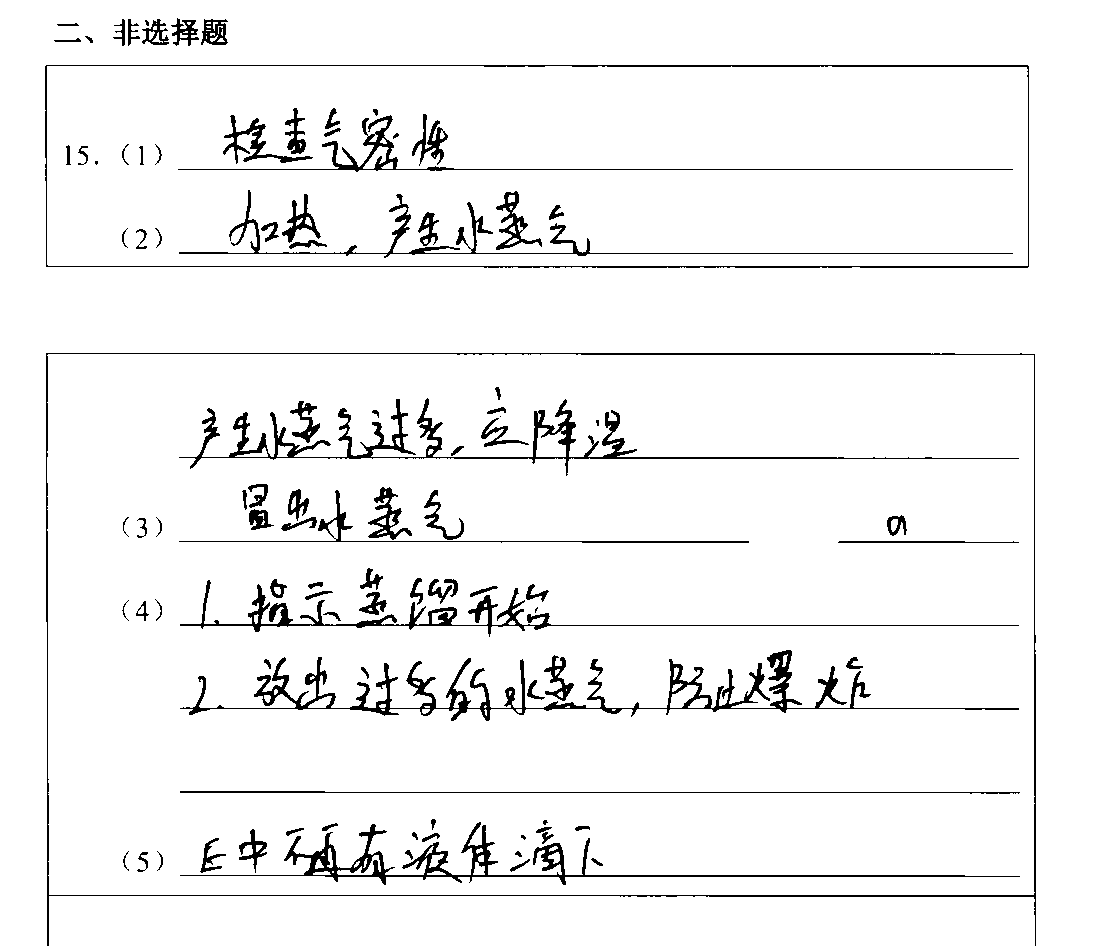 二、非选择题
15.（1） 检查气密性
（2） 加热，产生水蒸气
产生水蒸气过多，立降温
（3） 冒出水蒸气 a
（4） 1. 指示蒸馏开始
2. 放出过多的水蒸气，防止爆炸
（5） E中不再有液体滴下